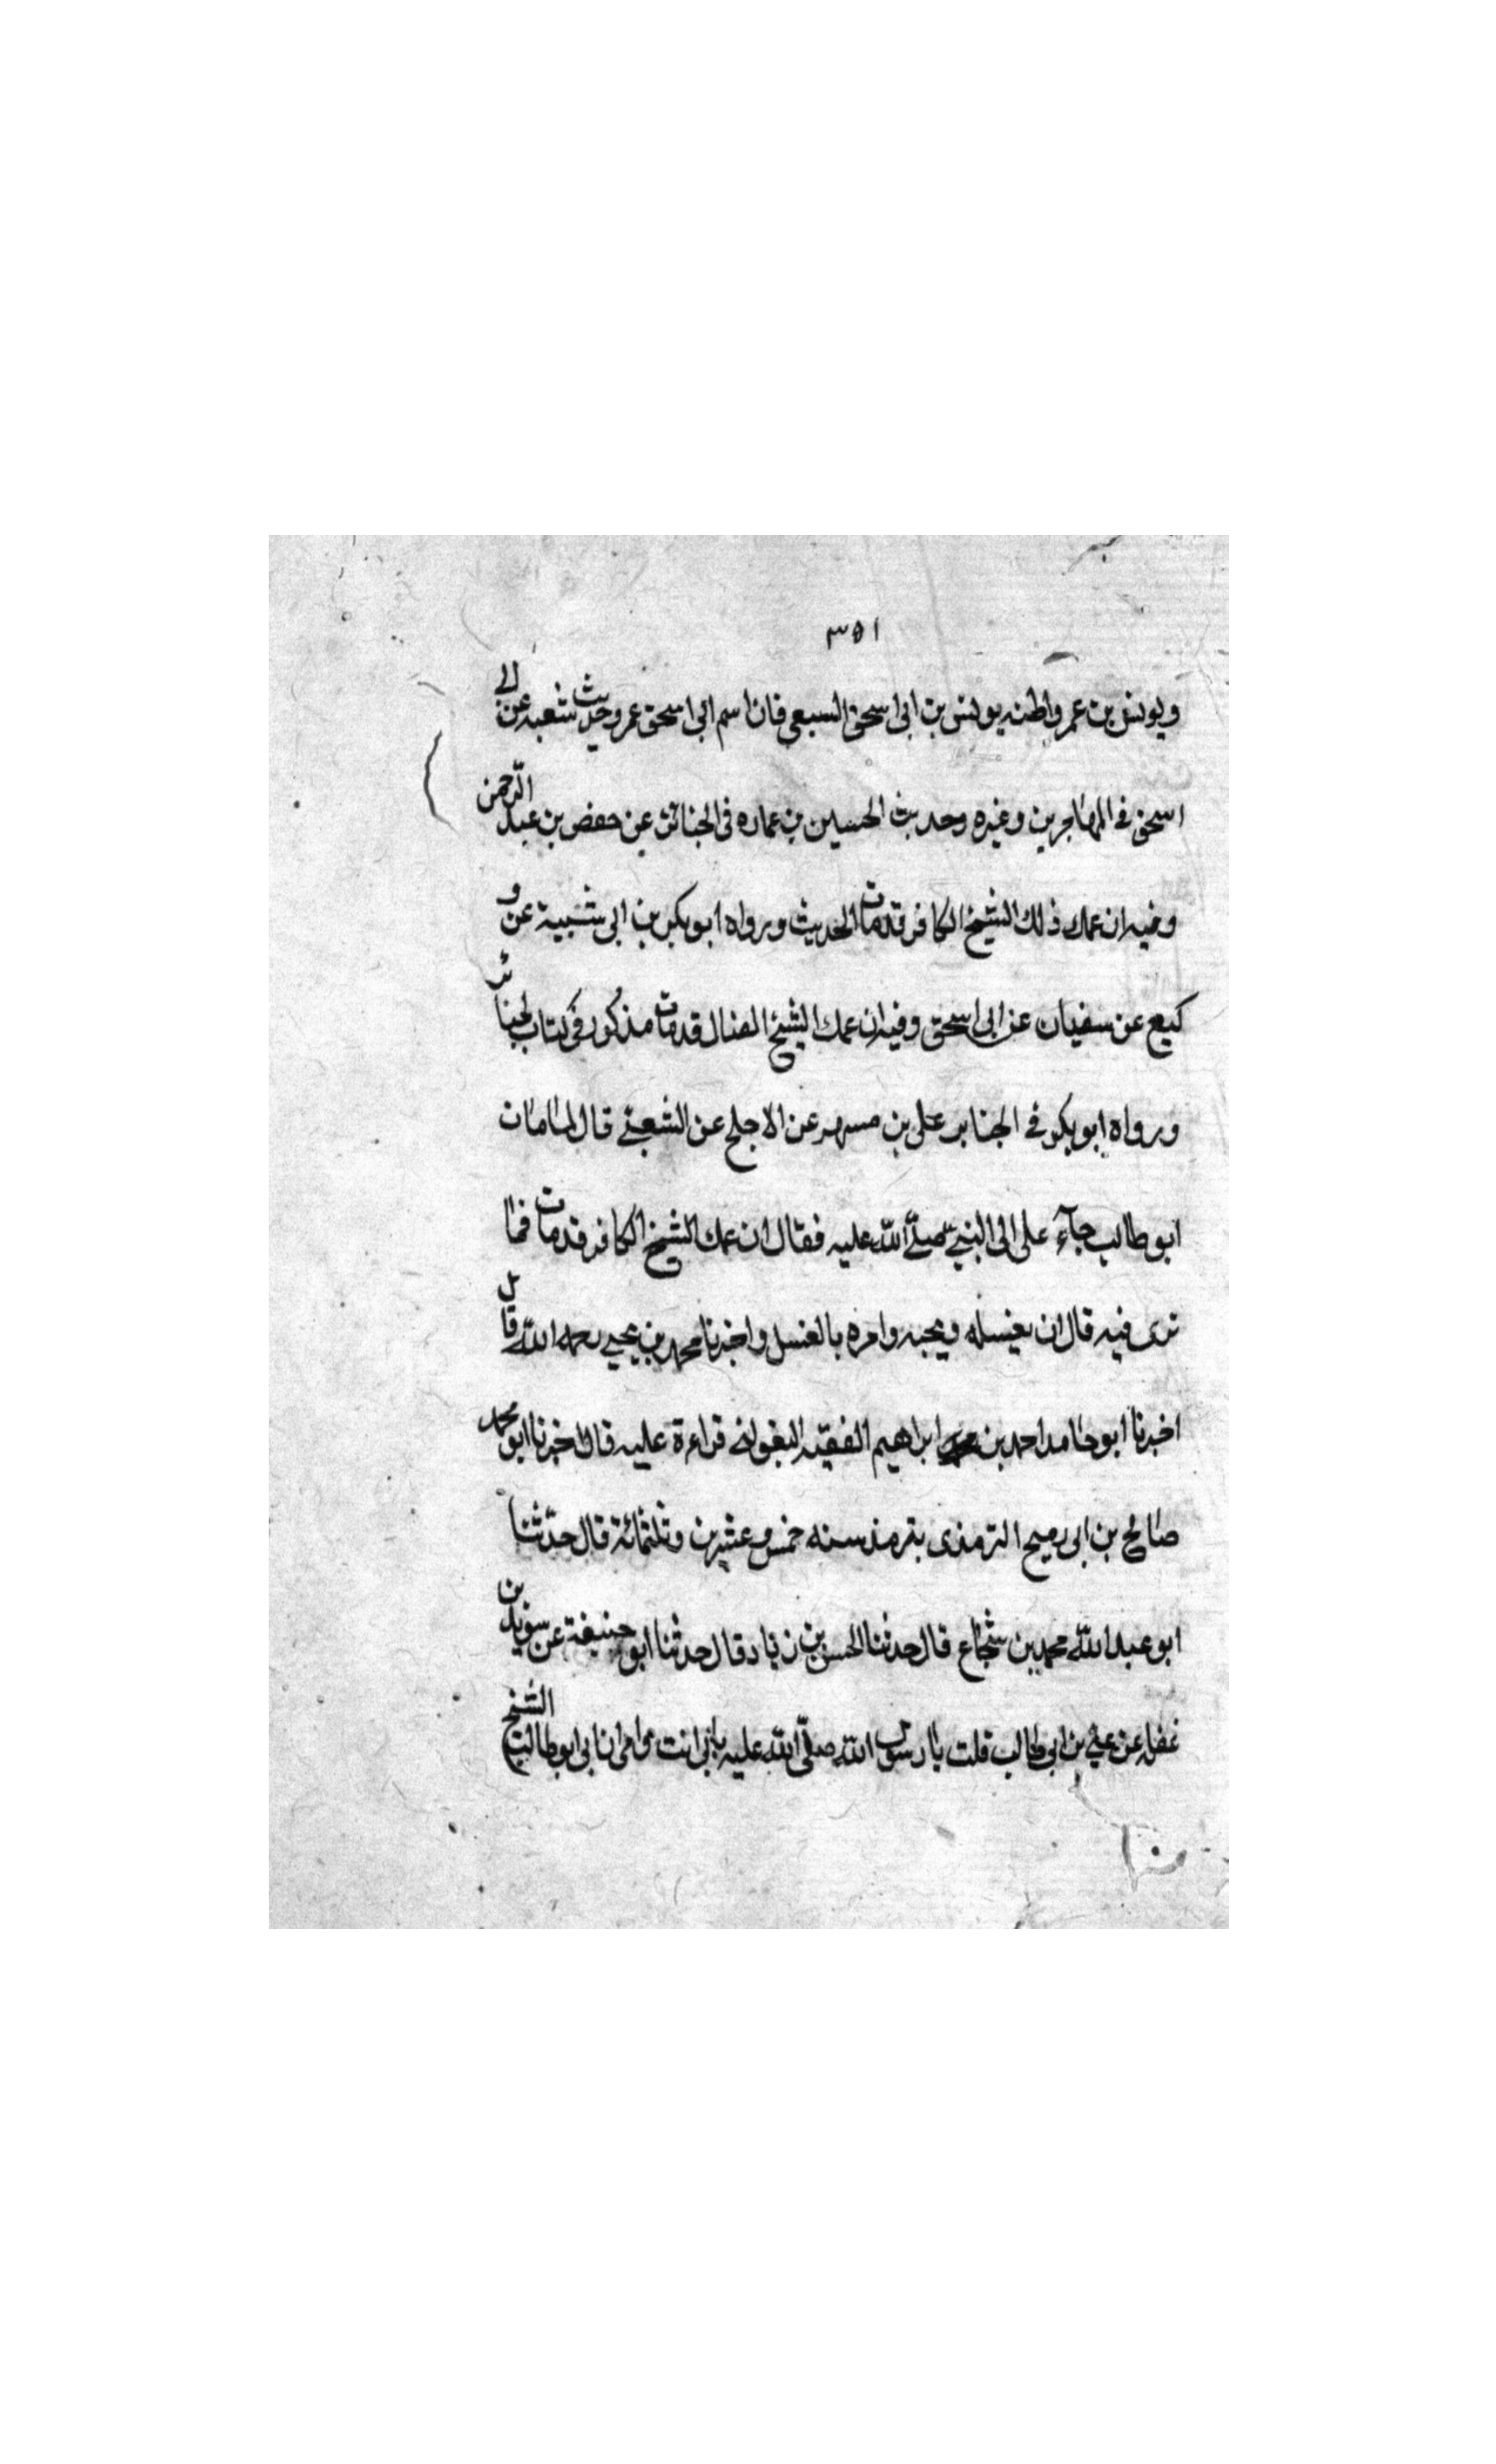 ٣٥١
ويونس بن عمر واظنه يونس بن ابى اسحق السبعى فان اسم ابى اسحق عمر وحديث شعبه عن ابى
اسحق فى المهاجرين وغيره وحديث الحسين بن عماره فى الجنائز عن حفص بن عبد الرّحمن
وفيه ان عمك ذلك الشيخ الكافر قد مات الحديث ورواه ابو بكر بن ابى شيبة عن و
كيع عن سفيان عن ابى اسحق وفيه ان عمك الشيخ الضال قد مات مذكور فى كتاب الجنائز
ورواه ابو بكر فى الجنايز على بن مسهر عن الاجلح عن الشعبى قال لما مات
ابو طالب جآء على الى النبىّ صلّى اللّه عليه فقال ان عمك الشيخ الكافر قد مات فما
ترى فيه قال ان يغسله ويجبه وامره بالغسل واخبرنا محمد بن يحيى رحمه اللّه قال
اخبرنا ابو حامد احمد بن ابراهيم الفقيه البغولنى قراءة عليه قال اخبرنا ابو محمد
صالح بن ابى رميح الترمذى بترمذ سنه خمس وعشرين وثلثمائة قال حدّثنا
ابو عبد اللّه محمد بن شجاع قال حدثنا الحسن بن زياد قال حدثنا ابو حنيفة عن سويد بن
غفله عن على بن ابى طالب قلت يا رسول اللّه صلّى اللّه عليه بابى انت وامى ان ابى ابو طالب الشيخ